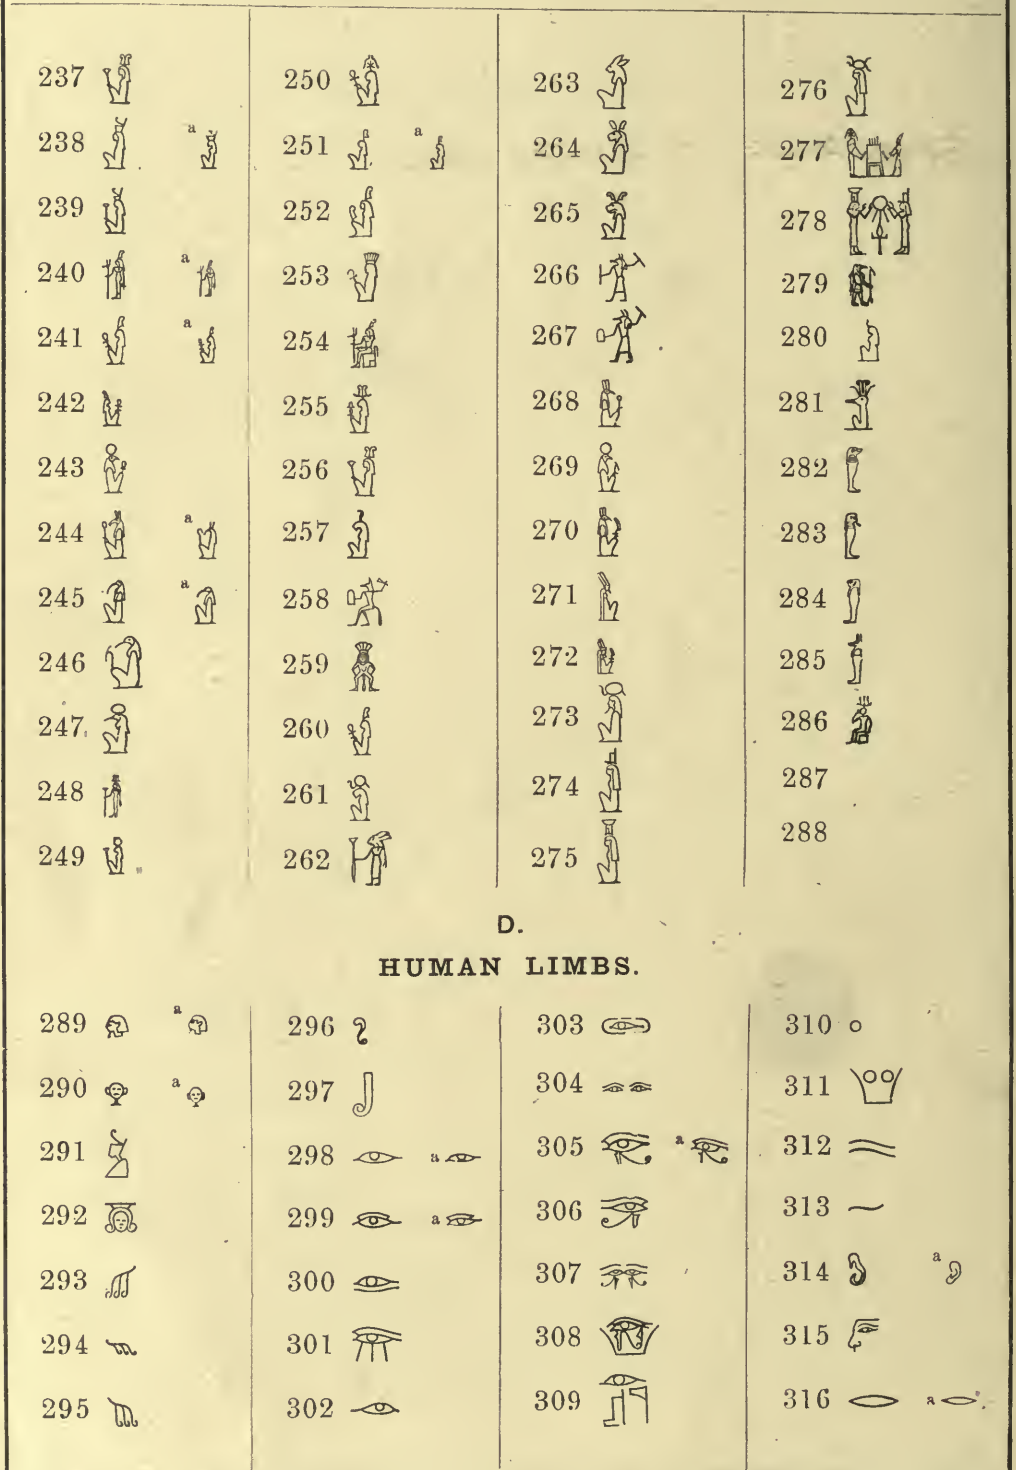 237
238 a
239
240 a
241 a
242
243
244 a
245 a
246
247
248
249
250
251 a
252
253
254
255
256
257
258
259
260
261
262
263
264
265
266
267
268
269
270
271
272
273
274
275
276
277
278
279
280
281
282
283
284
285
286
287
288
D.
HUMAN LIMBS.
289 a
290 a
291
292
293
294
295
296
297
298 a
299 a
300
301
302
303
304
305 a
306
307
308
309
310
311
312
313
314 a
315
316 a